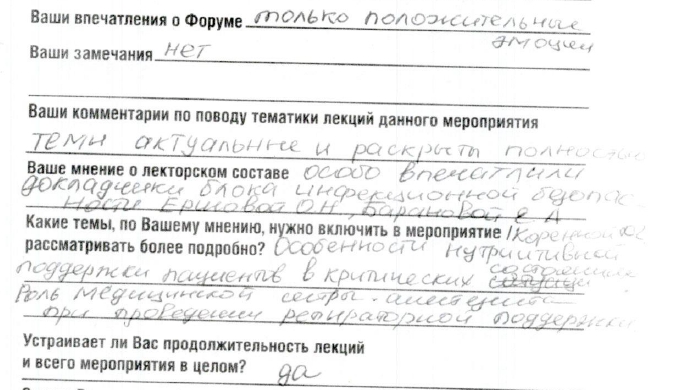 Ваши впечатления о Форуме только положительные
эмоции
Ваши замечания нет
Ваши комментарии по поводу тематики лекций данного мероприятия
темы актуальные и раскрыты полностью
Ваше мнение о лекторском составе особо впечатлили
докладчики блока инфекционной безопас-
ности Ершовой О.Н., Барановой Е.А
Какие темы, по Вашему мнению, нужно включить в мероприятие /
рассматривать более подробно? Особенности нутритивной
поддержки пациентов в критических состояниях
Роль медицинской сестры-анестезиста
при проведении респираторной поддержки
Устраивает ли Вас продолжительность лекций
и всего мероприятия в целом? да